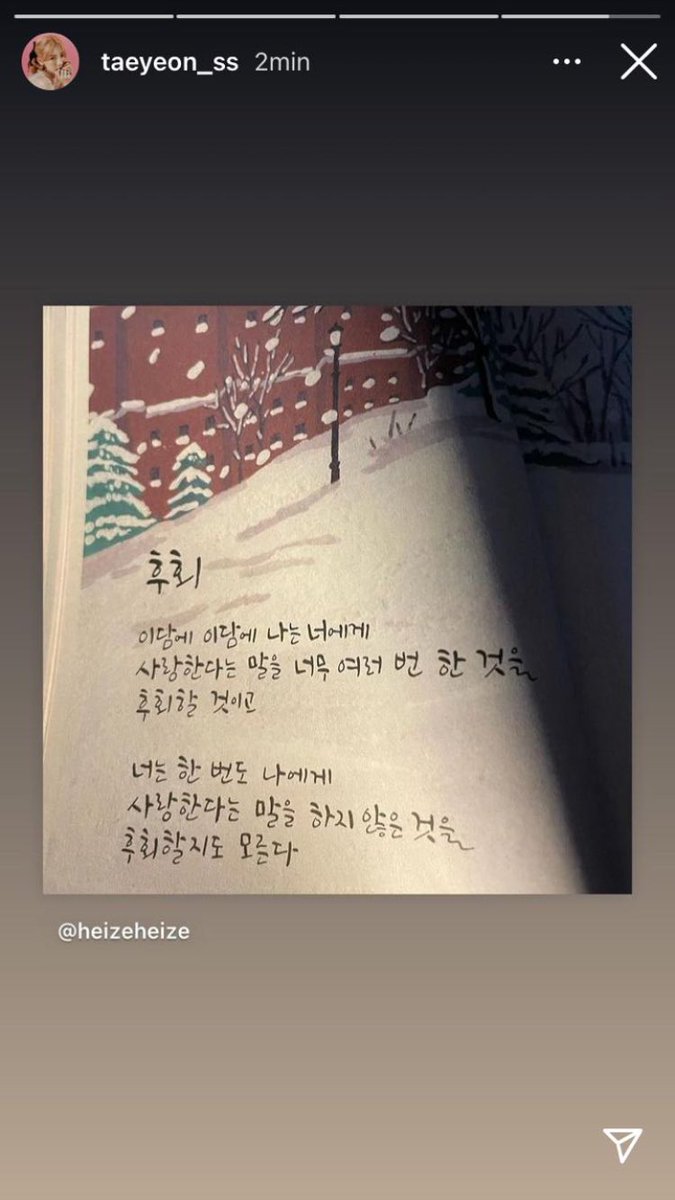 taeyeon_ss 2min
후회
이담에 이담에 나는 너에게
사랑한다는 말을 너무 여러 번 한 것을
후회할 것이고
너는 한 번도 나에게
사랑한다는 말을 하지 않은 것을
후회할지도 모른다
@heizeheize